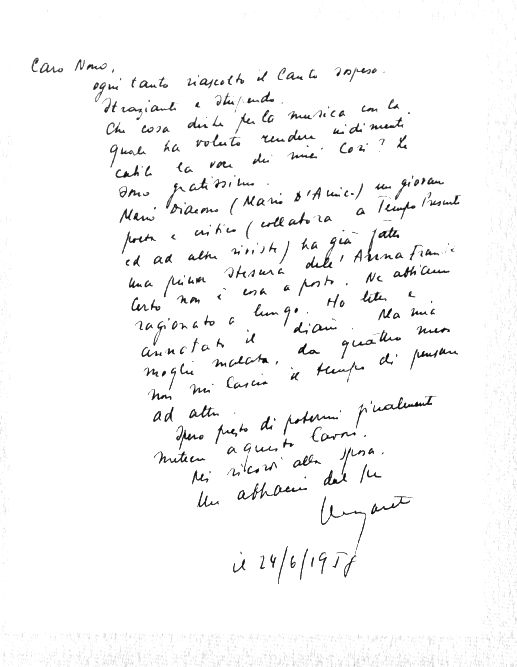 Caro Nono,
ogni tanto riascolto il Canto sospeso.
Straziante e stupendo.
Che cosa dirle per la musica con la
quale ha voluto rendere indimenti
cabile la voce dei miei Cori? Le
sono gratissimo.
Mario Diacono (Mario D'Amico) un giovane
poeta e critico (collabora a Tempo Presente
ed ad altre riviste) ha già fatto
una prima stesura dell'Anna Frank
Certo non è cosa a posto. Ne abbiamo
ragionato a lungo. Ho letto e
annotato il diario. Ma mia
moglie malata, da quattro mesi
non mi lascia il tempo di pensare
ad altro.
Spero presto di potermi finalmente
mettere a questo lavoro.
Mi ricordi alla sposa.
Un abbraccio dal Suo
Ungaretti
il 24/6/1958